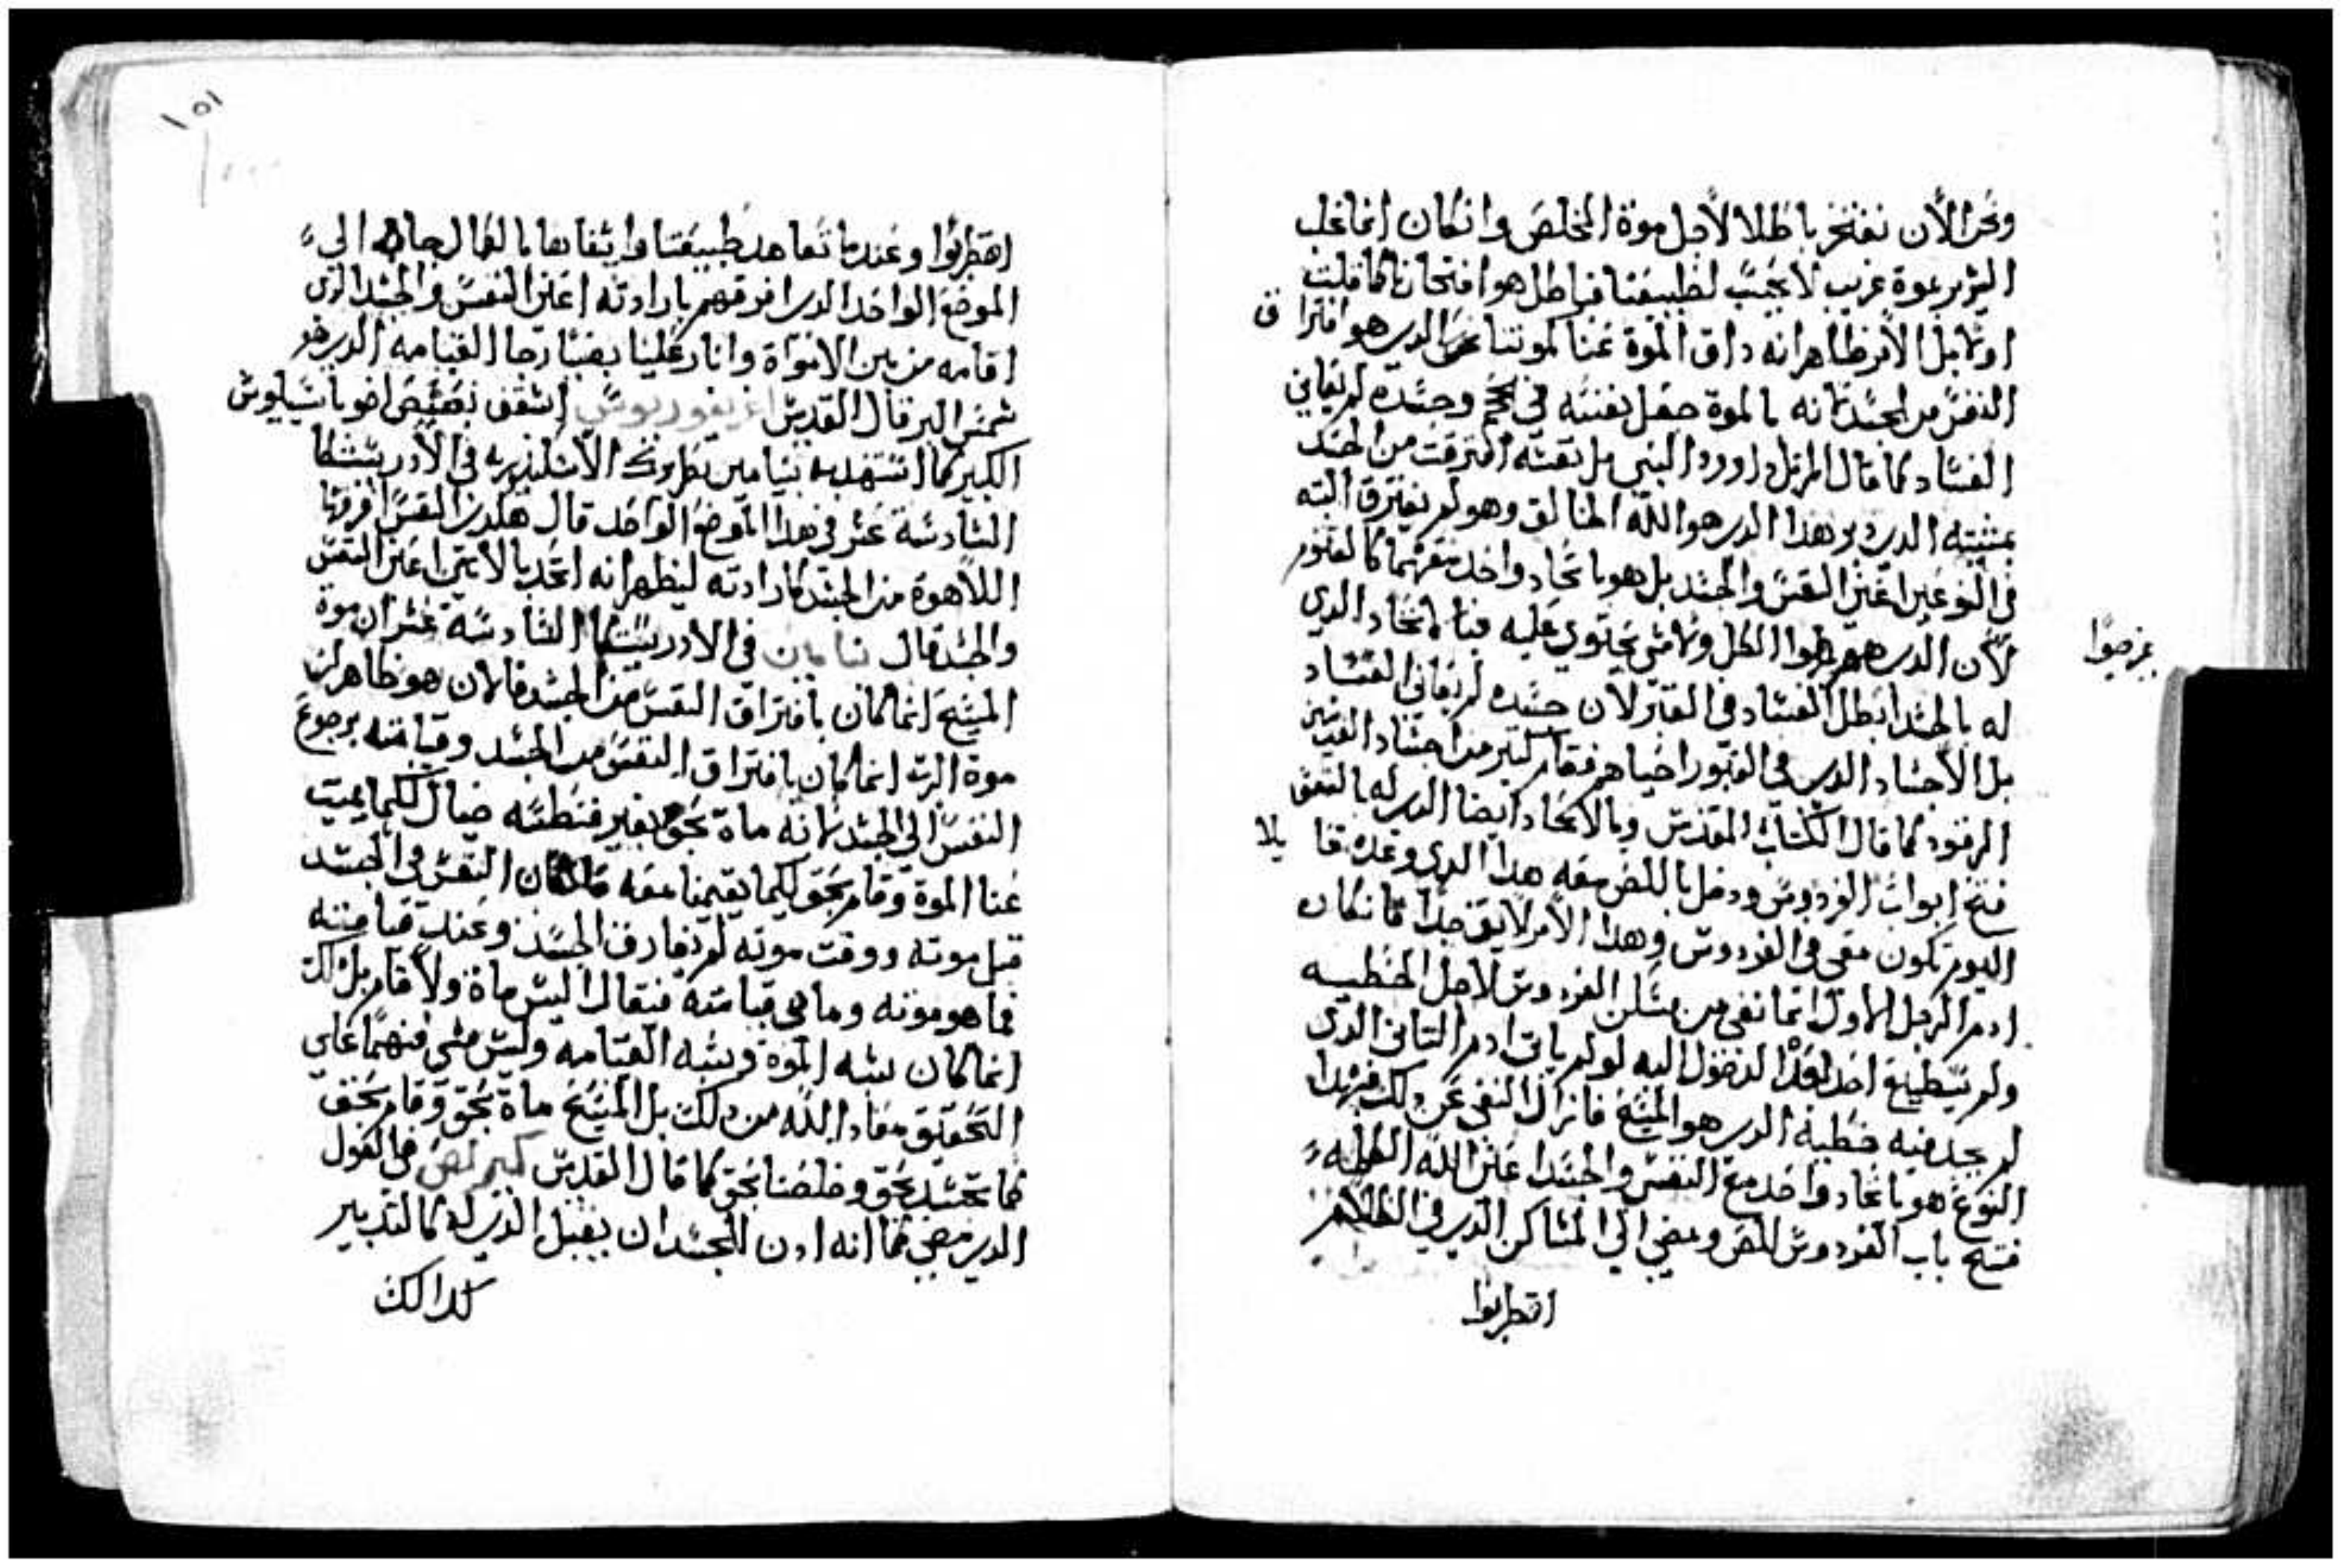 ونحن الأن نفتخر باطلا لاجل موة المخلص وانكان انما غلب
الشرير بموة غريب لا يجيب لطبيعتنا فباطل هو افتخارنا كما قلت
اولا بل الأمر ظاهر انه داق الموة عنا لموتنا نحن الدي هو افترا ق
النفس من الجسد لانه بالموة جعل نفسه في الجحيم وجسده لم يعاين
الفساد كما قال المرتل داوود النبي بل نفسه افترقت من الجسد
بمشيته الدي دبر هدا الدي هو الله الخالق وهو لم يفترق البته
في النوعين اعني النفس والجسد بل هو باتحاد واحد معهما كالغير
لأن الدي هو الكل ولا شي يحتوي عليه فبالاتحاد الدي
له بالجسد ابطل الفساد في القبر لان جسده لم يعاين الفساد
بل الأجساد الدي في القبور احياهم فقام كثير من اجساد القديسين
الرقود كما قال الكتاب المقدس وبالاتحاد ايضا الدي له بالنفس
فتح ابواب الفردوس ودخل باللص معه هدا الدي وعده قا يلا
اليوم تكون معي في الفردوس وهدا الأمر لايق جدا فانكان
ادم الرجل الاول انما نفي من مسكن الفردوس لاجل الخطيه
ولم يستطيع احد الدخول اليه لو لم ياتي ادم التاني الدي
لم يجد فيه خطية الدي هو المسيح فازال النفي عن دلك فبهدا
النوع هو باتحاد واحد مع النفس والجسد اعني الله الكلمه
فتح باب الفردوس للص ومضي الي المساكن الدي في الظلام
اقطربوا
اقطربوا وعندما تعاهد طبيعتنا
الموضع الواحد الدي افرقهم بارادته اعني النفس والجسد الدي
اقامه من بين الاموات وانار علينا بغتتا رجا القيامه الدي هو
شمس البر قال القديس اغريغوريوس اسقف نصيص اخو باسيليوس
الكبير كما استشهد به بنيامين بطريرك الأسكندريه في الأدريستكا
السادسة عشر في هدا الموضع الواحد قال هكدي النفس افرقها
اللاهوة من الجسد كارادته ليظهر انه اتحد بالاتنين اعني النفس
والجسد قال بنيامين في الادريستكا السادسة عشر ان موة
المسيح انما كان بافتراق النفس من الجسد فالان هو ظاهر لن
موة الرب انما كان بافتراق النفس من الجسد وقيامته برجوع
النفس الي الجسد لانه ماة بحق بغير فنطسه خيال لكيما يميت
عنا الموة وقام بحق لكيما يقيمنا معه فان كان النفس في الجسد
قبل موته ووقت موته لم يفارق الجسد وعند قيامته
فما هو موته وما هي قيامته فيقال اليس ماة ولا قام بل لك
انما كان شبه الموة وشبه القيامه وليس شي منهما علي
التحقيق معاد الله من دلك بل المسيح ماة بحق وقام بحق
كما تجسد بحق وخلصنا بحق كما قال القديس كيرلص في القول
الدي مضي كما انه ادن للجسد ان يقبل الدي له كالتدبير
كدالك